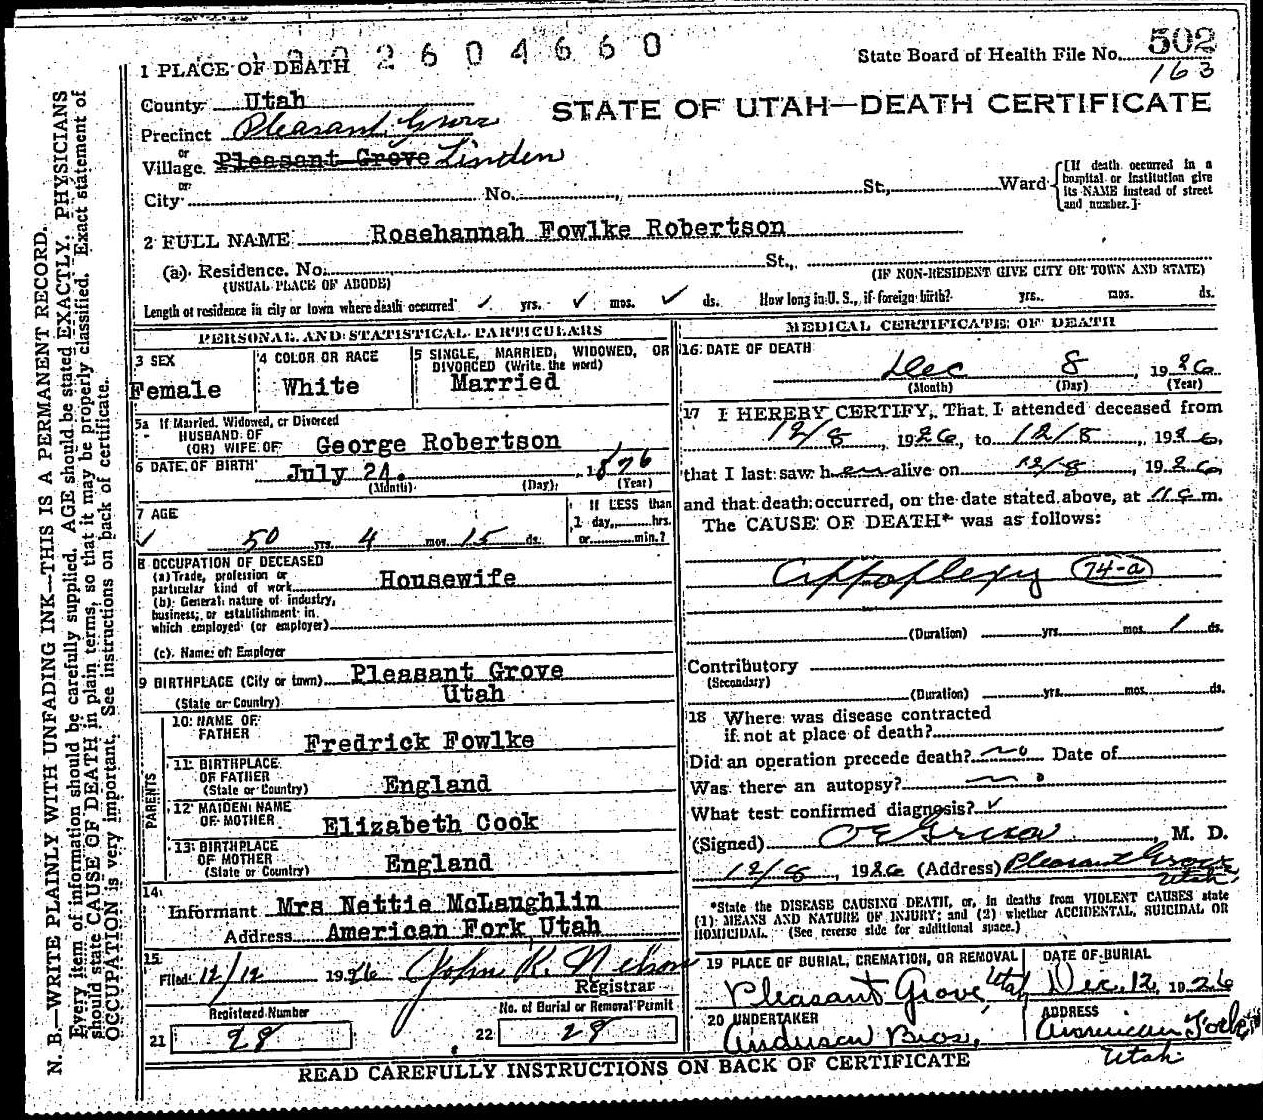 1 PLACE OF DEATH 2604660
State Board of Health File No. 502
163
County Utah
STATE OF UTAH—DEATH CERTIFICATE
Precinct Pleasant Grove
or
Village Pleasant Grove Linden
or
City No. St., Ward [If death occurred in a hospital or institution give its NAME instead of street and number.]
2 FULL NAME Rosehannah Fowlke Robertson
(a) Residence. No. St.,
(USUAL PLACE OF ABODE) (IF NON-RESIDENT GIVE CITY OR TOWN AND STATE)
Length of residence in city or town where death occurred ✓ yrs. ✓ mos. ✓ ds. How long in U. S., if foreign birth? yrs. mos. ds.
PERSONAL AND STATISTICAL PARTICULARS
3 SEX
Female
4 COLOR OR RACE
White
5 SINGLE, MARRIED, WIDOWED, OR
DIVORCED (Write the word)
Married
5a If Married, Widowed, or Divorced
HUSBAND OF
(OR) WIFE OF George Robertson
6 DATE OF BIRTH July 24. 1876
(Month) (Day) (Year)
7 AGE
✓ 50 yrs. 4 mos. 15 ds.
If LESS than
1 day, hrs.
or min.?
8 OCCUPATION OF DECEASED
(a) Trade, profession or
particular kind of work Housewife
(b) General nature of industry,
business, or establishment in
which employed (or employer)
(c) Name of Employer
9 BIRTHPLACE (City or town) Pleasant Grove
(State or Country) Utah
PARENTS
10 NAME OF
FATHER Fredrick Fowlke
11 BIRTHPLACE
OF FATHER
(State or Country) England
12 MAIDEN NAME
OF MOTHER Elizabeth Cook
13 BIRTHPLACE
OF MOTHER
(State or Country) England
14
Informant Mrs Nettie McLaughlin
Address American Fork Utah
15
Filed 12/12 1926 John K. Nelson
Registrar
Registered Number
21 28
No. of Burial or Removal Permit
22 28
MEDICAL CERTIFICATE OF DEATH
16 DATE OF DEATH
Dec 8, 1926
(Month) (Day) (Year)
17 I HEREBY CERTIFY, That I attended deceased from
12/8, 1926, to 12/8, 1926,
that I last saw her alive on 12/8, 1926
and that death occurred, on the date stated above, at 11 m.
The CAUSE OF DEATH* was as follows:
Appoplexy 74-a
(Duration) yrs. mos. 1 ds.
Contributory
(Secondary)
(Duration) yrs. mos. ds.
18 Where was disease contracted
if not at place of death?
Did an operation precede death? no Date of
Was there an autopsy? no
What test confirmed diagnosis? ✓
(Signed) M. D.
12/8, 1926 (Address) Pleasant Grove
Utah
*State the DISEASE CAUSING DEATH, or, in deaths from VIOLENT CAUSES state
(1) MEANS AND NATURE OF INJURY; and (2) whether ACCIDENTAL, SUICIDAL OR
HOMICIDAL. (See reverse side for additional space.)
19 PLACE OF BURIAL, CREMATION, OR REMOVAL
Pleasant Grove, Utah
DATE OF BURIAL
Dec. 12, 1926
20 UNDERTAKER
Anderson Bros,
ADDRESS
American Fork
Utah
READ CAREFULLY INSTRUCTIONS ON BACK OF CERTIFICATE
N. B.—WRITE PLAINLY WITH UNFADING INK—THIS IS A PERMANENT RECORD.
Every item of information should be carefully supplied. AGE should be stated EXACTLY. PHYSICIANS
should state CAUSE OF DEATH in plain terms, so that it may be properly classified. Exact statement of
OCCUPATION is very important. See instructions on back of certificate.